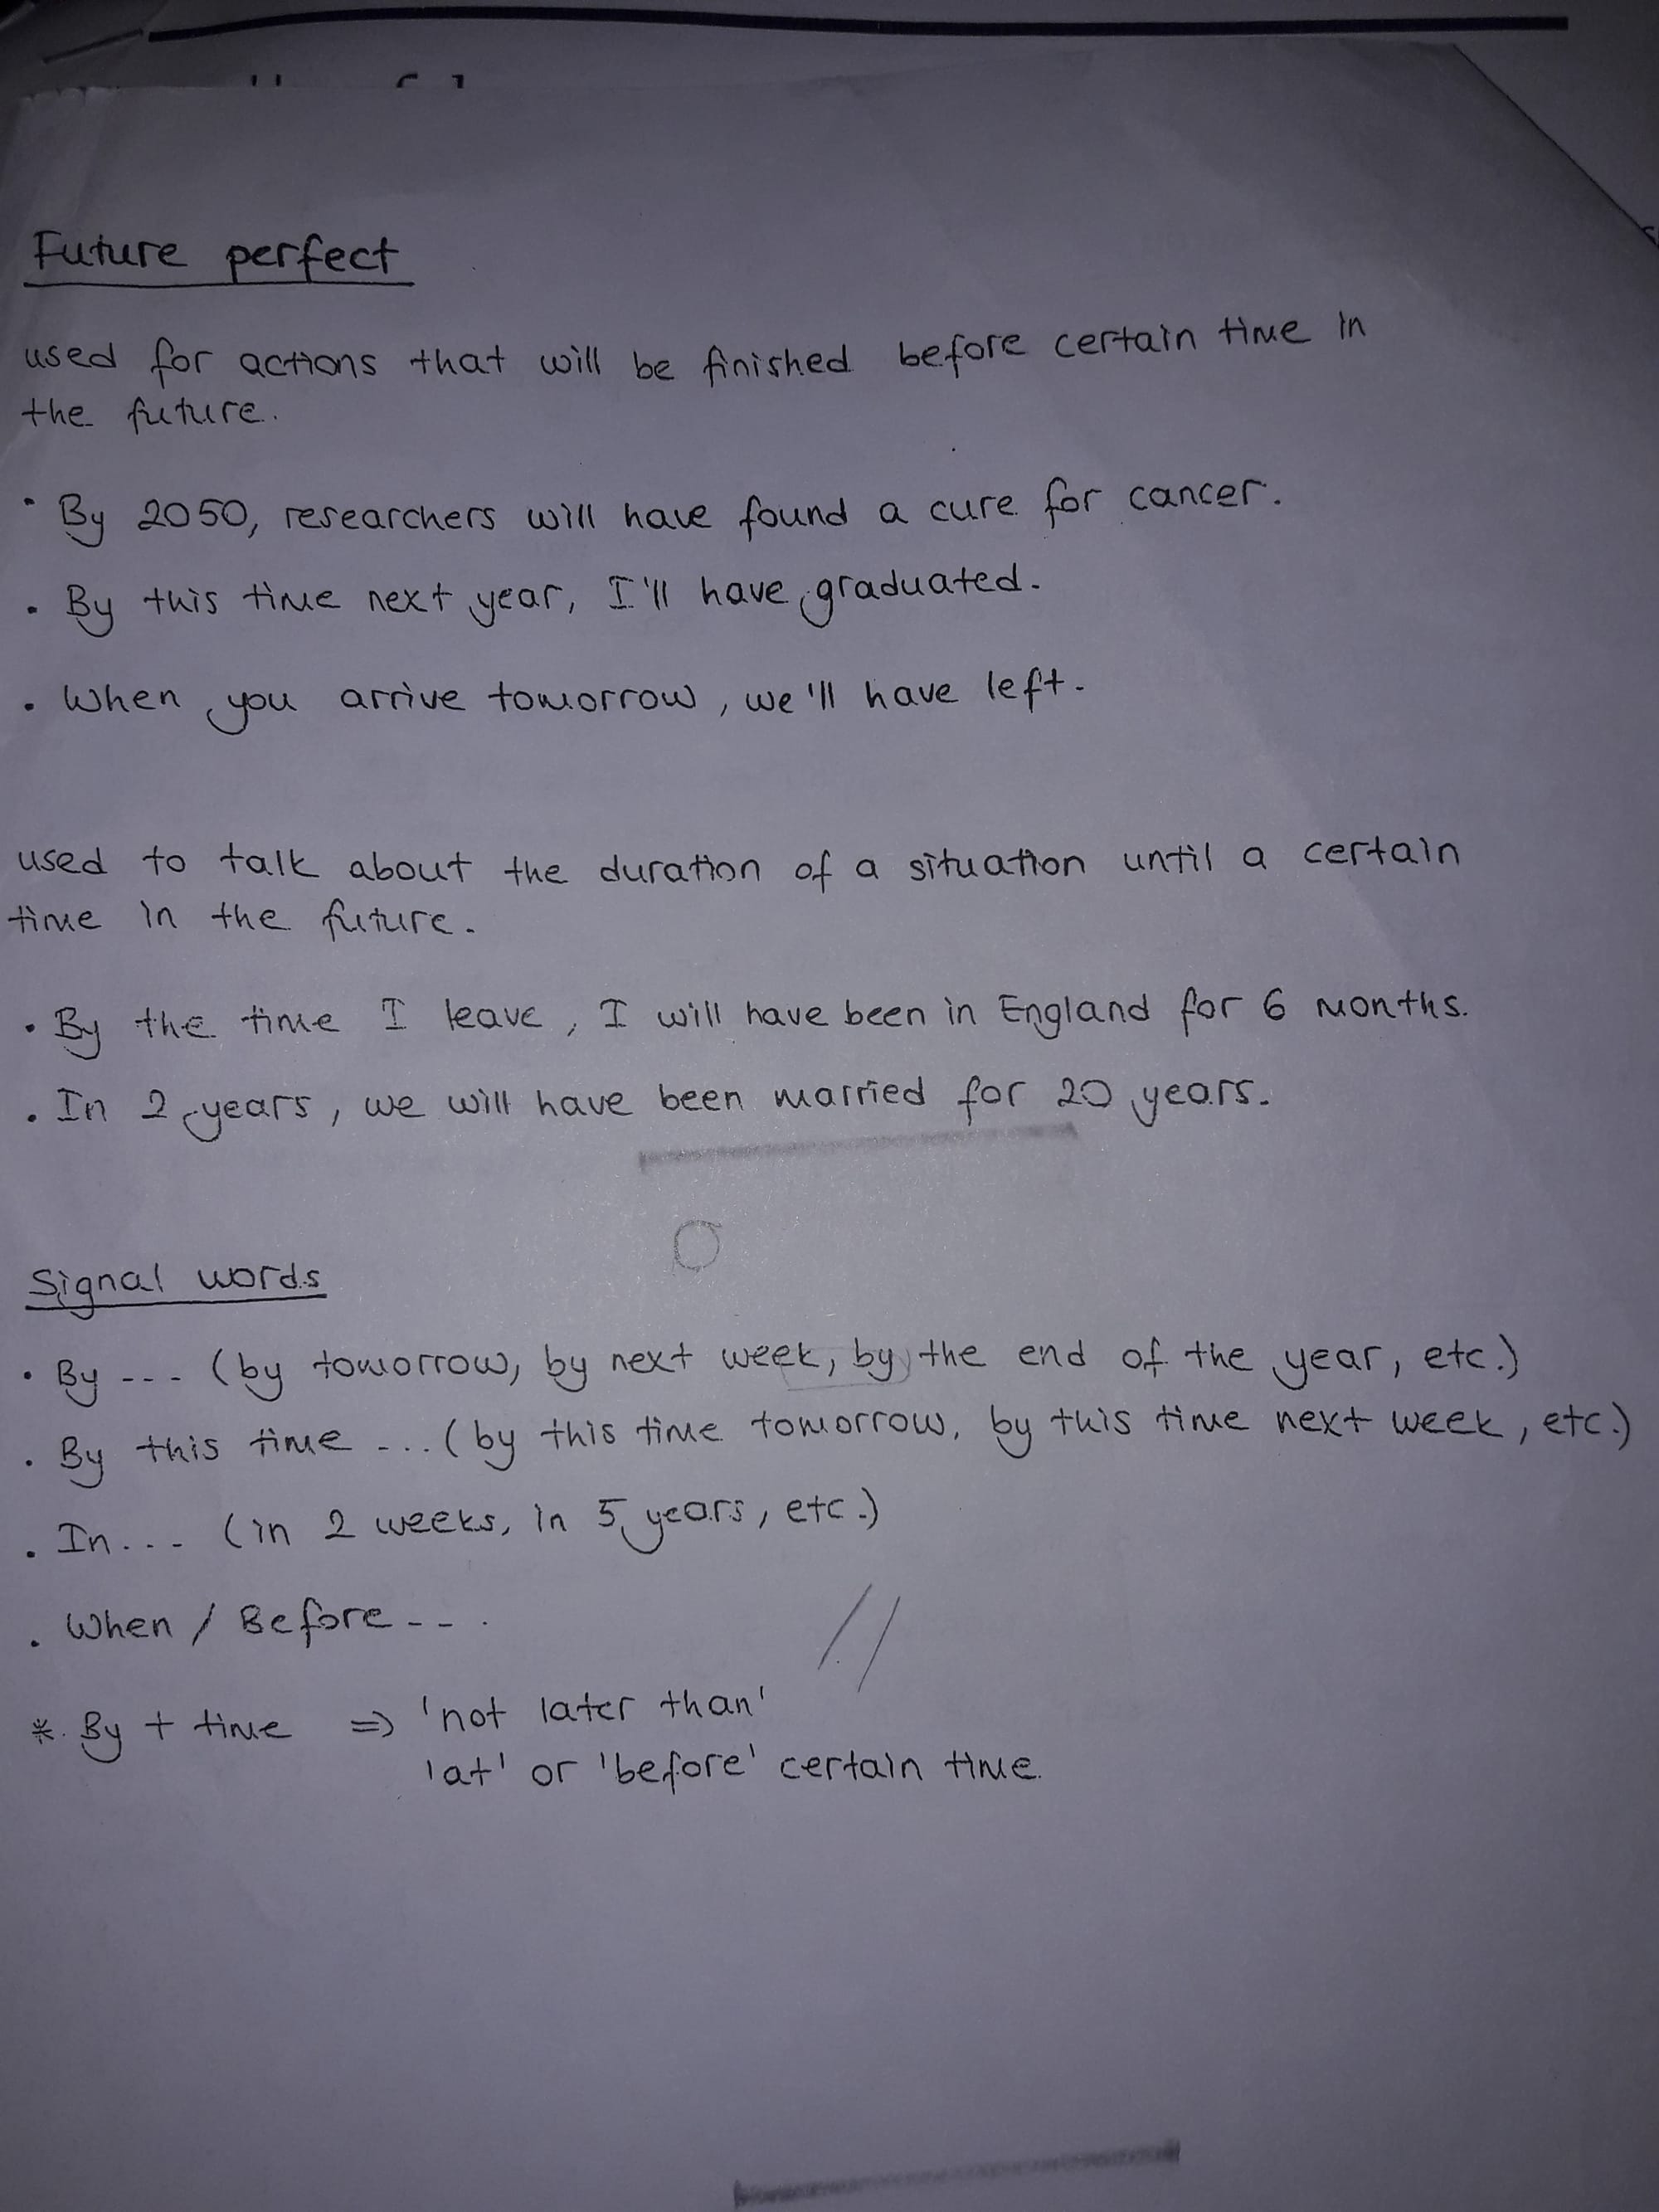 Future perfect
used for actions that will be finished before certain time in
the future.
• By 2050, researchers will have found a cure for cancer.
• By this time next year, I'll have graduated.
• When you arrive tomorrow, we'll have left.
used to talk about the duration of a situation until a certain
time in the future.
• By the time I leave, I will have been in England for 6 months.
• In 2 years, we will have been married for 20 years.
Signal words
• By --- (by tomorrow, by next week, by the end of the year, etc.)
• By this time ... (by this time tomorrow, by this time next week, etc.)
• In... (in 2 weeks, in 5 years, etc.)
• When / Before---.
* By + time => 'not later than'
'at' or 'before' certain time.